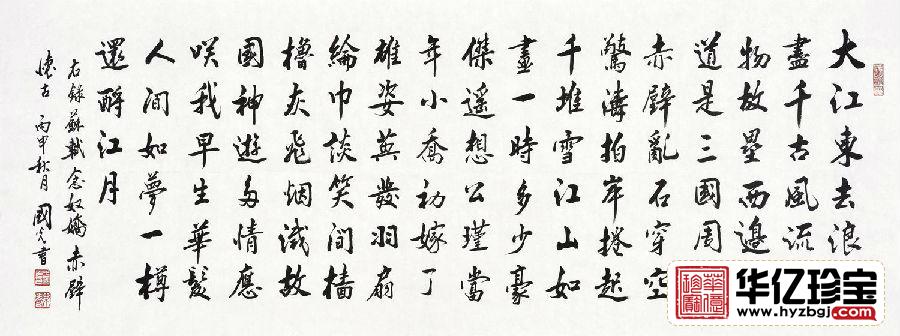 大江東去浪
盡千古風流
物故壘西邊
道是三國周
赤壁亂石穿空
驚濤拍岸捲起
千堆雪江山如
畫一時多少豪
傑遙想公瑾當
年小喬初嫁了
雄姿英發羽扇
綸巾談笑間檣
櫓灰飛烟滅故
國神遊多情應
笑我早生華髮
人間如夢一樽
還酹江月
右錄蘇軾念奴嬌赤壁
懷古 丙申秋月 國書
华亿珍宝
www.hyzbgj.com